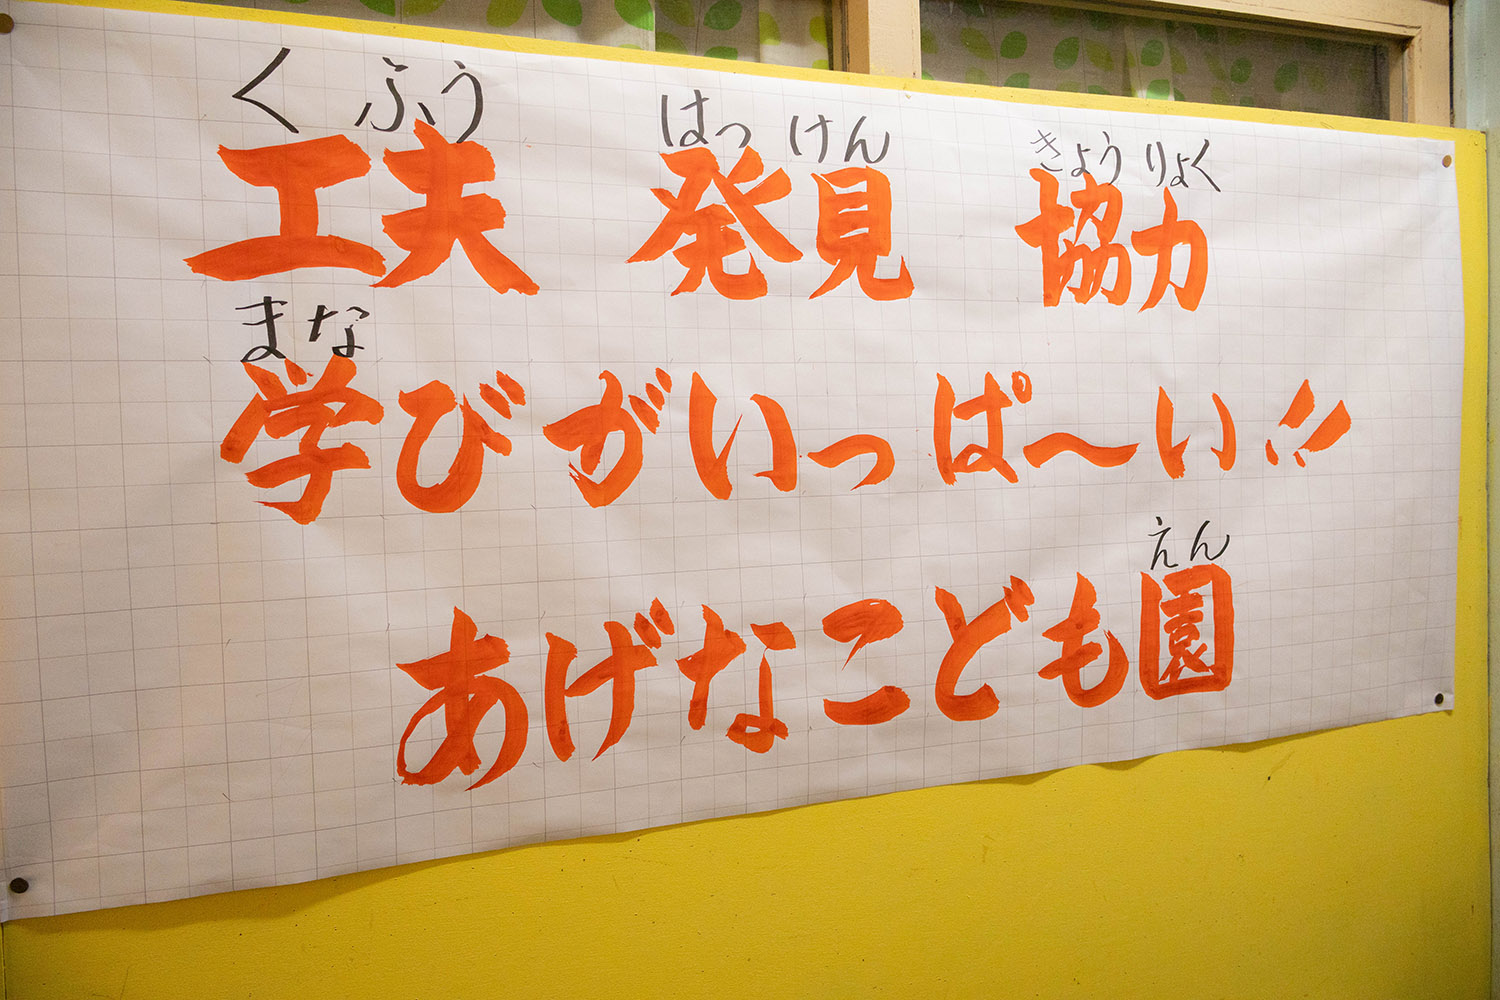 くふう はっけん きょうりょく
工夫 発見 協力
まな
学びがいっぱ～い!!
えん
あげなこども園